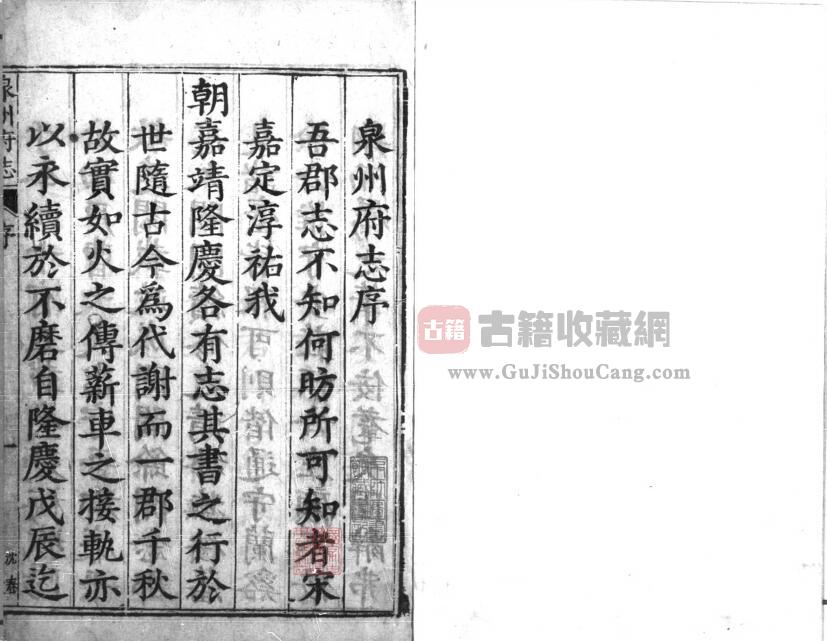 泉州府志序
吾郡志不知何昉所可知者宋
嘉定淳祐我
朝嘉靖隆慶各有志其書之行於
世隨古今為代謝而一郡千秋
故實如火之傳薪車之接軌亦
以永續於不磨自隆慶戊辰迄
泉州府志
序
一
沈春
古籍
古籍收藏網
www.GuJiShouCang.com